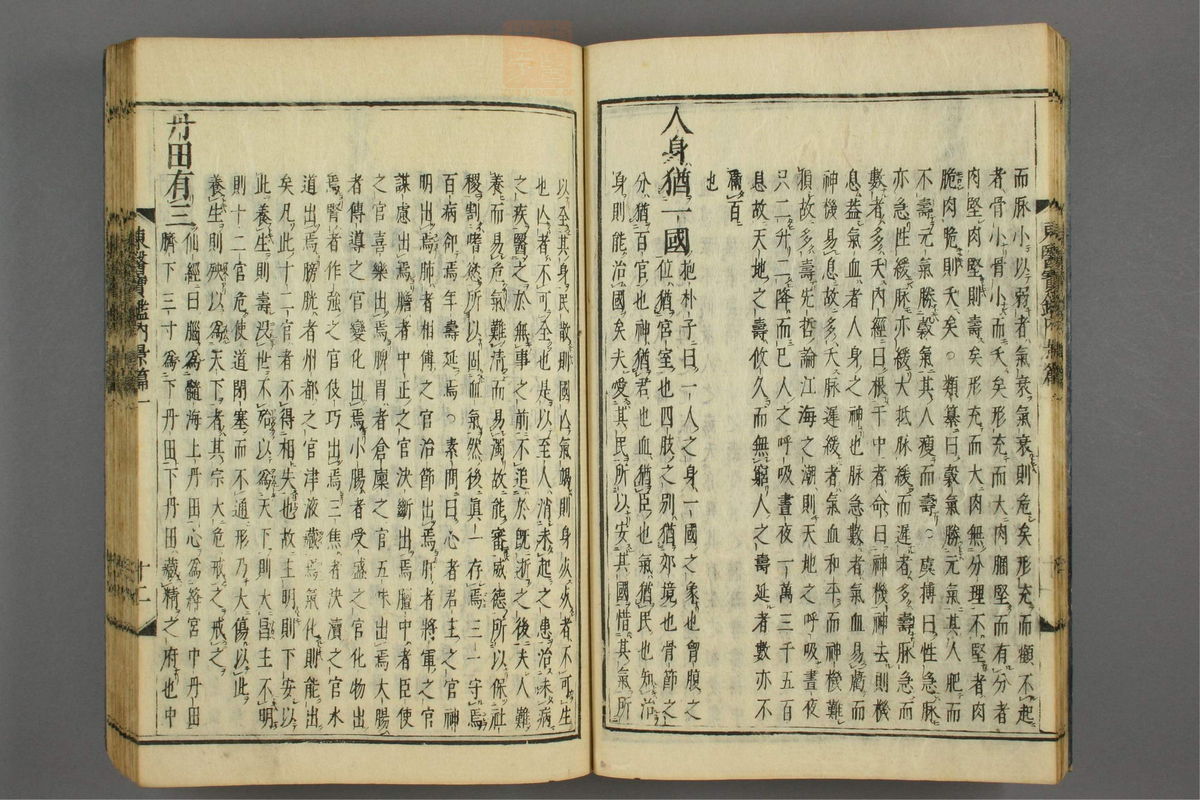 而脉小以弱者氣衰氣衰則危矣形充而顴不起
者骨小骨小而夭矣形充而大肉䐃堅而有分者
肉堅肉堅則壽矣形充而大肉無分理不堅者肉
脆肉脆則夭矣○類纂曰穀氣勝元氣其人肥而
不壽元氣勝穀氣其人瘦而壽○虞摶曰性急脉
亦急性緩脉亦緩大抵脉緩而遲者多壽脉急而
數者多夭內經曰根于中者命曰神機神去則機
息盖氣血者人身之神也脉急數者氣血易虧而
神機易息故多夭脉遲緩者氣血和平而神機難
損故多壽先哲論江海之潮則天地之呼吸晝夜
只二升二降而已人之呼吸晝夜一萬三千五百
息故天地之壽攸久而無窮人之壽延者數亦不
滿百
也
人身猶一國
抱朴子曰一人之身一國之象也胷腹之
位猶宮室也四肢之別猶郊境也骨節之
分猶百官也神猶君也血猶臣也氣猶民也知治
身則能治國矣夫愛其民所以安其國惜其氣所
以全其身民散則國亡氣竭則身死死者不可生
也亡者不可全也是以至人消未起之患治未病
之疾醫之於無事之前不追於既逝之後夫人難
養而易危氣難清而易濁故能審威德所以保社
稷割嗜慾所以固血氣然後眞一存焉三一守焉
百病却焉年壽延焉○素問曰心者君主之官神
明出焉肺者相傅之官治節出焉肝者將軍之官
謀慮出焉膽者中正之官決斷出焉膻中者臣使
之官喜樂出焉脾胃者倉廩之官五味出焉大腸
者傳導之官變化出焉小腸者受盛之官化物出
焉腎者作強之官伎巧出焉三焦者決瀆之官水
道出焉膀胱者州都之官津液藏焉氣化則能出
矣凡此十二官者不得相失也故主明則下安以
此養生則壽沒世不殆以爲天下則大昌主不明
則十二官危使道閉塞而不通形乃大傷以此
養生則殃以爲天下者其宗大危戒之戒之
丹田有三
仙經曰腦爲髓海上丹田心爲絳宮中丹田
臍下三寸爲下丹田下丹田藏精之府也中
東醫寶鑑內景篇一
十二